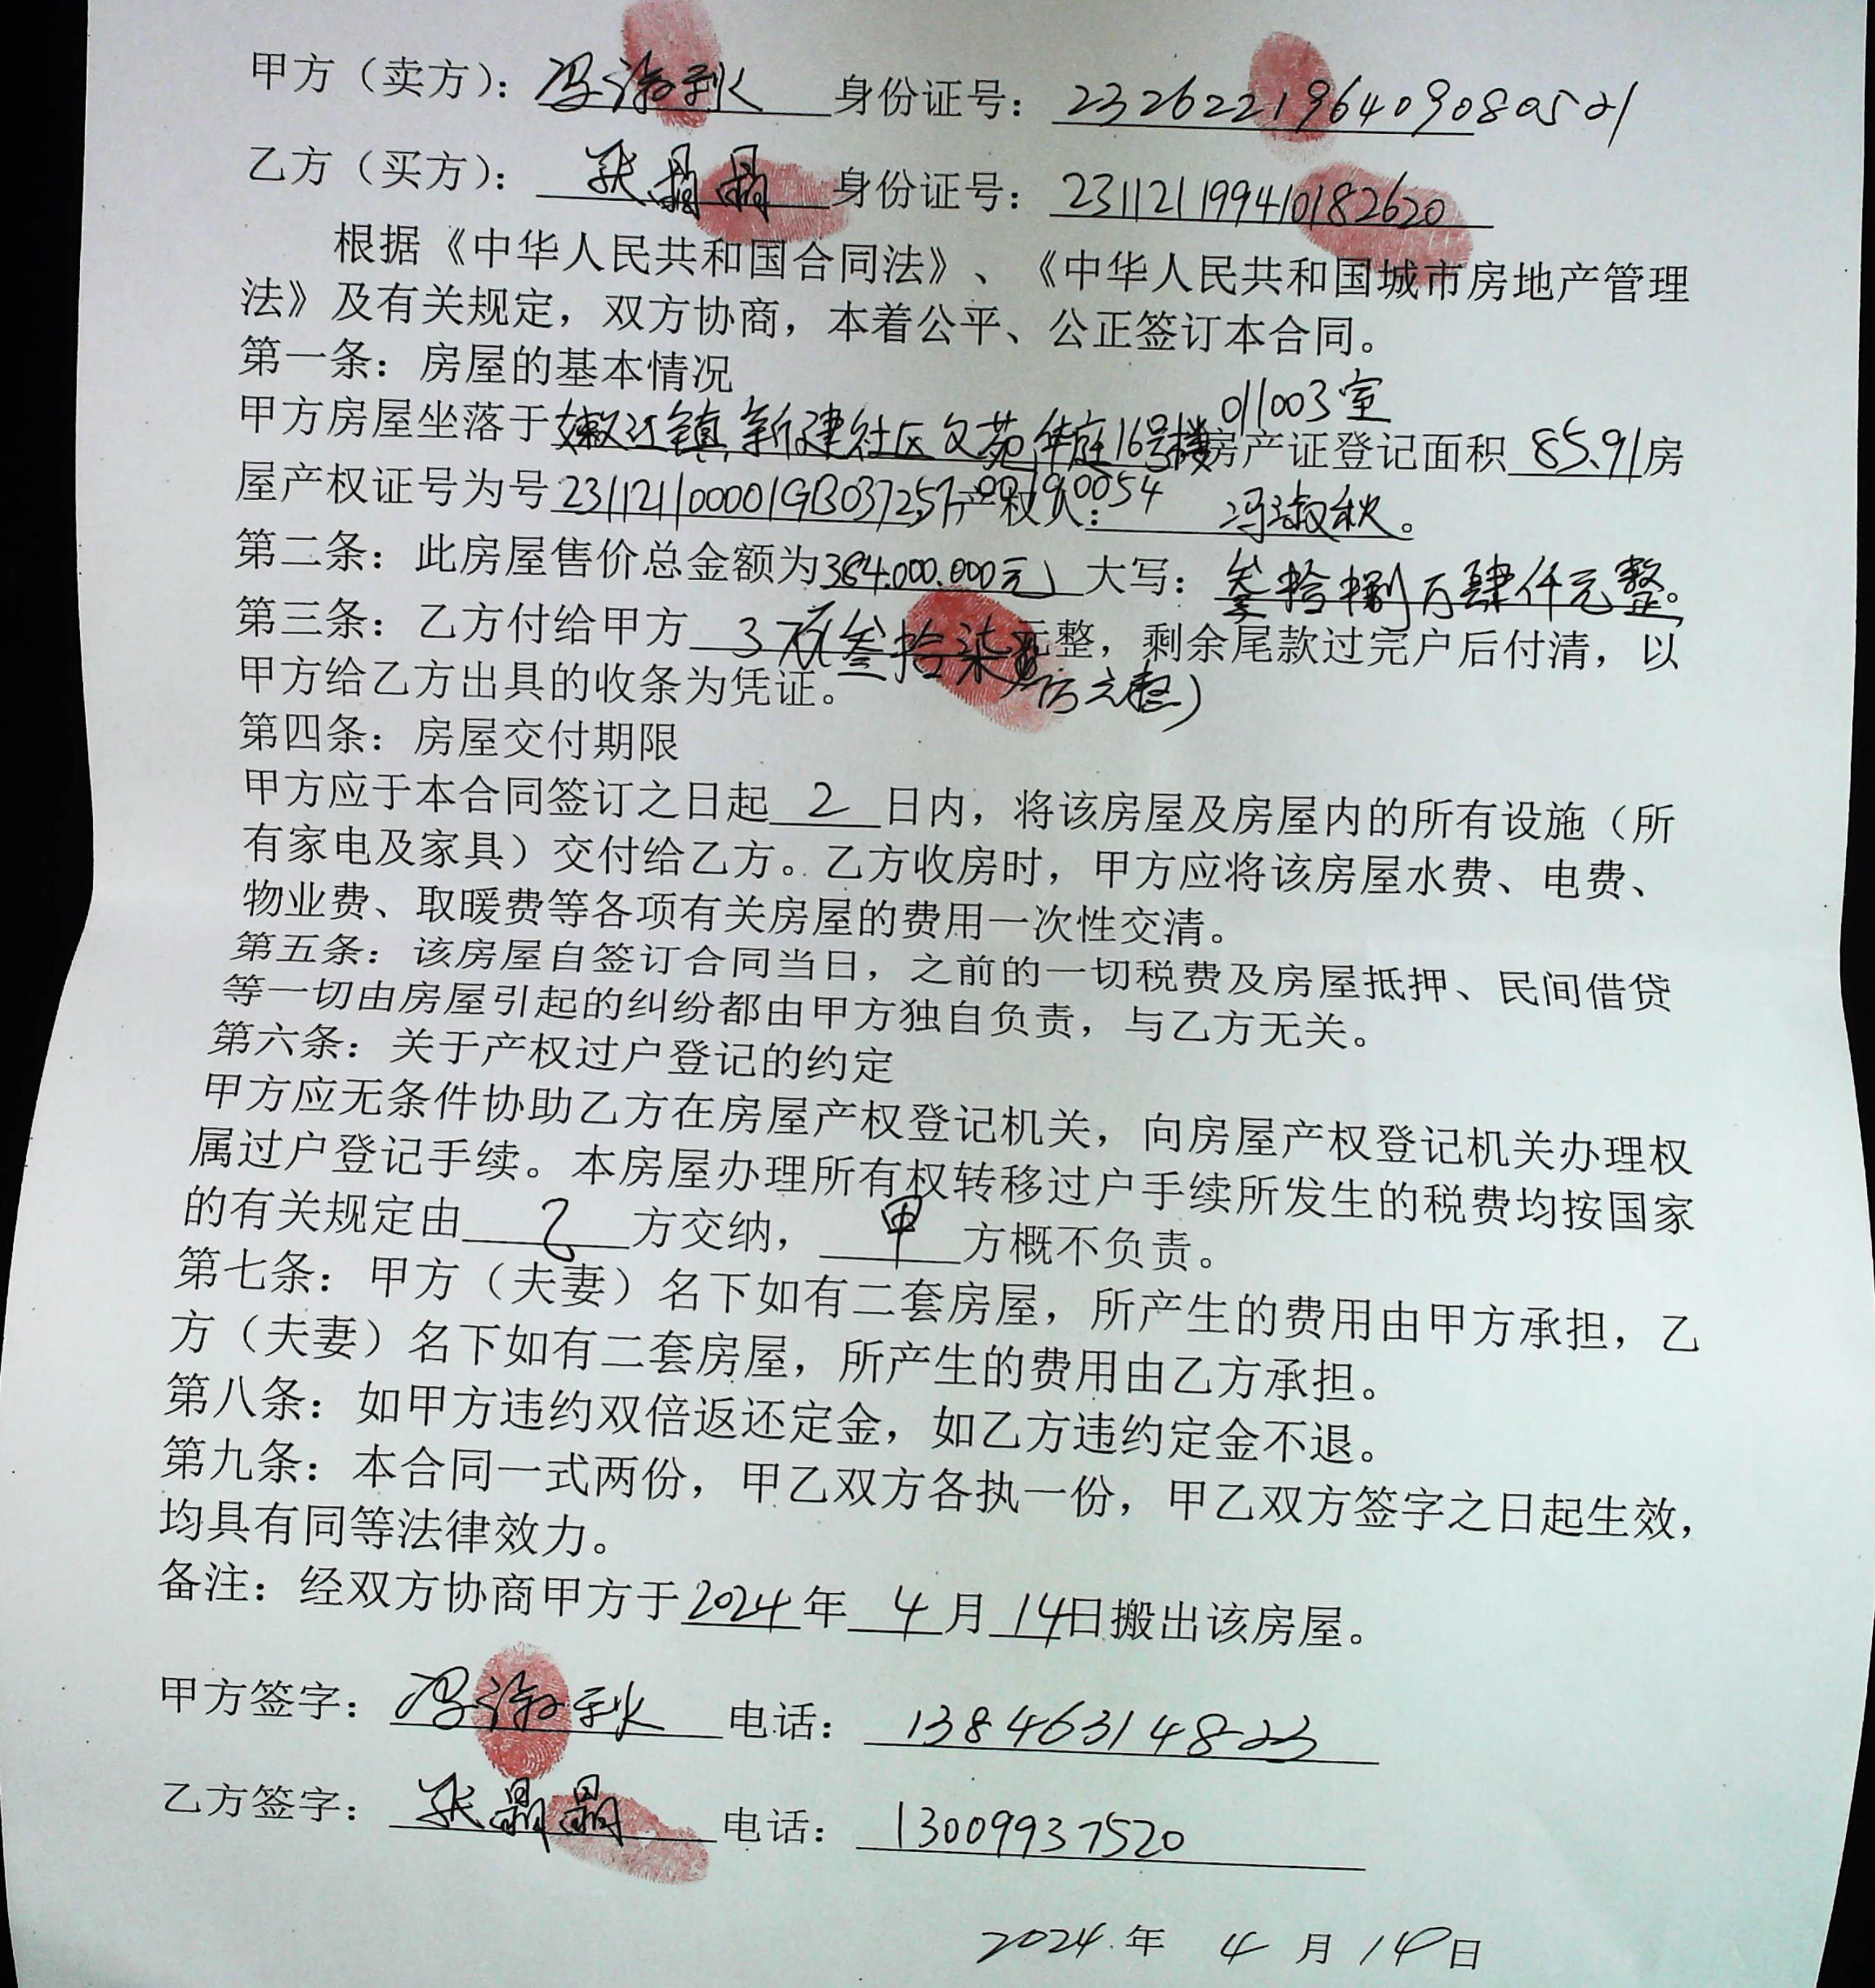 甲方（卖方）：冯淑秋 身份证号：232622196409080521
乙方（买方）：张晶晶 身份证号：231121199410182620
根据《中华人民共和国合同法》、《中华人民共和国城市房地产管理
法》及有关规定，双方协商，本着公平、公正签订本合同。
第一条：房屋的基本情况
011003室
甲方房屋坐落于嫩江镇新建社区文苑华庭16号楼房产证登记面积 85.91房
屋产权证号为号231121100001GB03725F00190054产权人：冯淑秋。
第二条：此房屋售价总金额为384.000.000元 大写：叁拾捌万肆仟元整。
第三条：乙方付给甲方 3万（叁拾柒 元整，剩余尾款过完户后付清，以
万元整）
甲方给乙方出具的收条为凭证。
第四条：房屋交付期限
甲方应于本合同签订之日起 2 日内，将该房屋及房屋内的所有设施（所
有家电及家具）交付给乙方。乙方收房时，甲方应将该房屋水费、电费、
物业费、取暖费等各项有关房屋的费用一次性交清。
第五条：该房屋自签订合同当日，之前的一切税费及房屋抵押、民间借贷
等一切由房屋引起的纠纷都由甲方独自负责，与乙方无关。
第六条：关于产权过户登记的约定
甲方应无条件协助乙方在房屋产权登记机关，向房屋产权登记机关办理权
属过户登记手续。本房屋办理所有权转移过户手续所发生的税费均按国家
的有关规定由 乙 方交纳， 甲 方概不负责。
第七条：甲方（夫妻）名下如有二套房屋，所产生的费用由甲方承担，乙
方（夫妻）名下如有二套房屋，所产生的费用由乙方承担。
第八条：如甲方违约双倍返还定金，如乙方违约定金不退。
第九条：本合同一式两份，甲乙双方各执一份，甲乙双方签字之日起生效，
均具有同等法律效力。
备注：经双方协商甲方于2024年 4 月 14日搬出该房屋。
甲方签字：冯淑秋 电话：13846314823
乙方签字：张晶晶 电话：13009937520
2024.年 4 月 14日